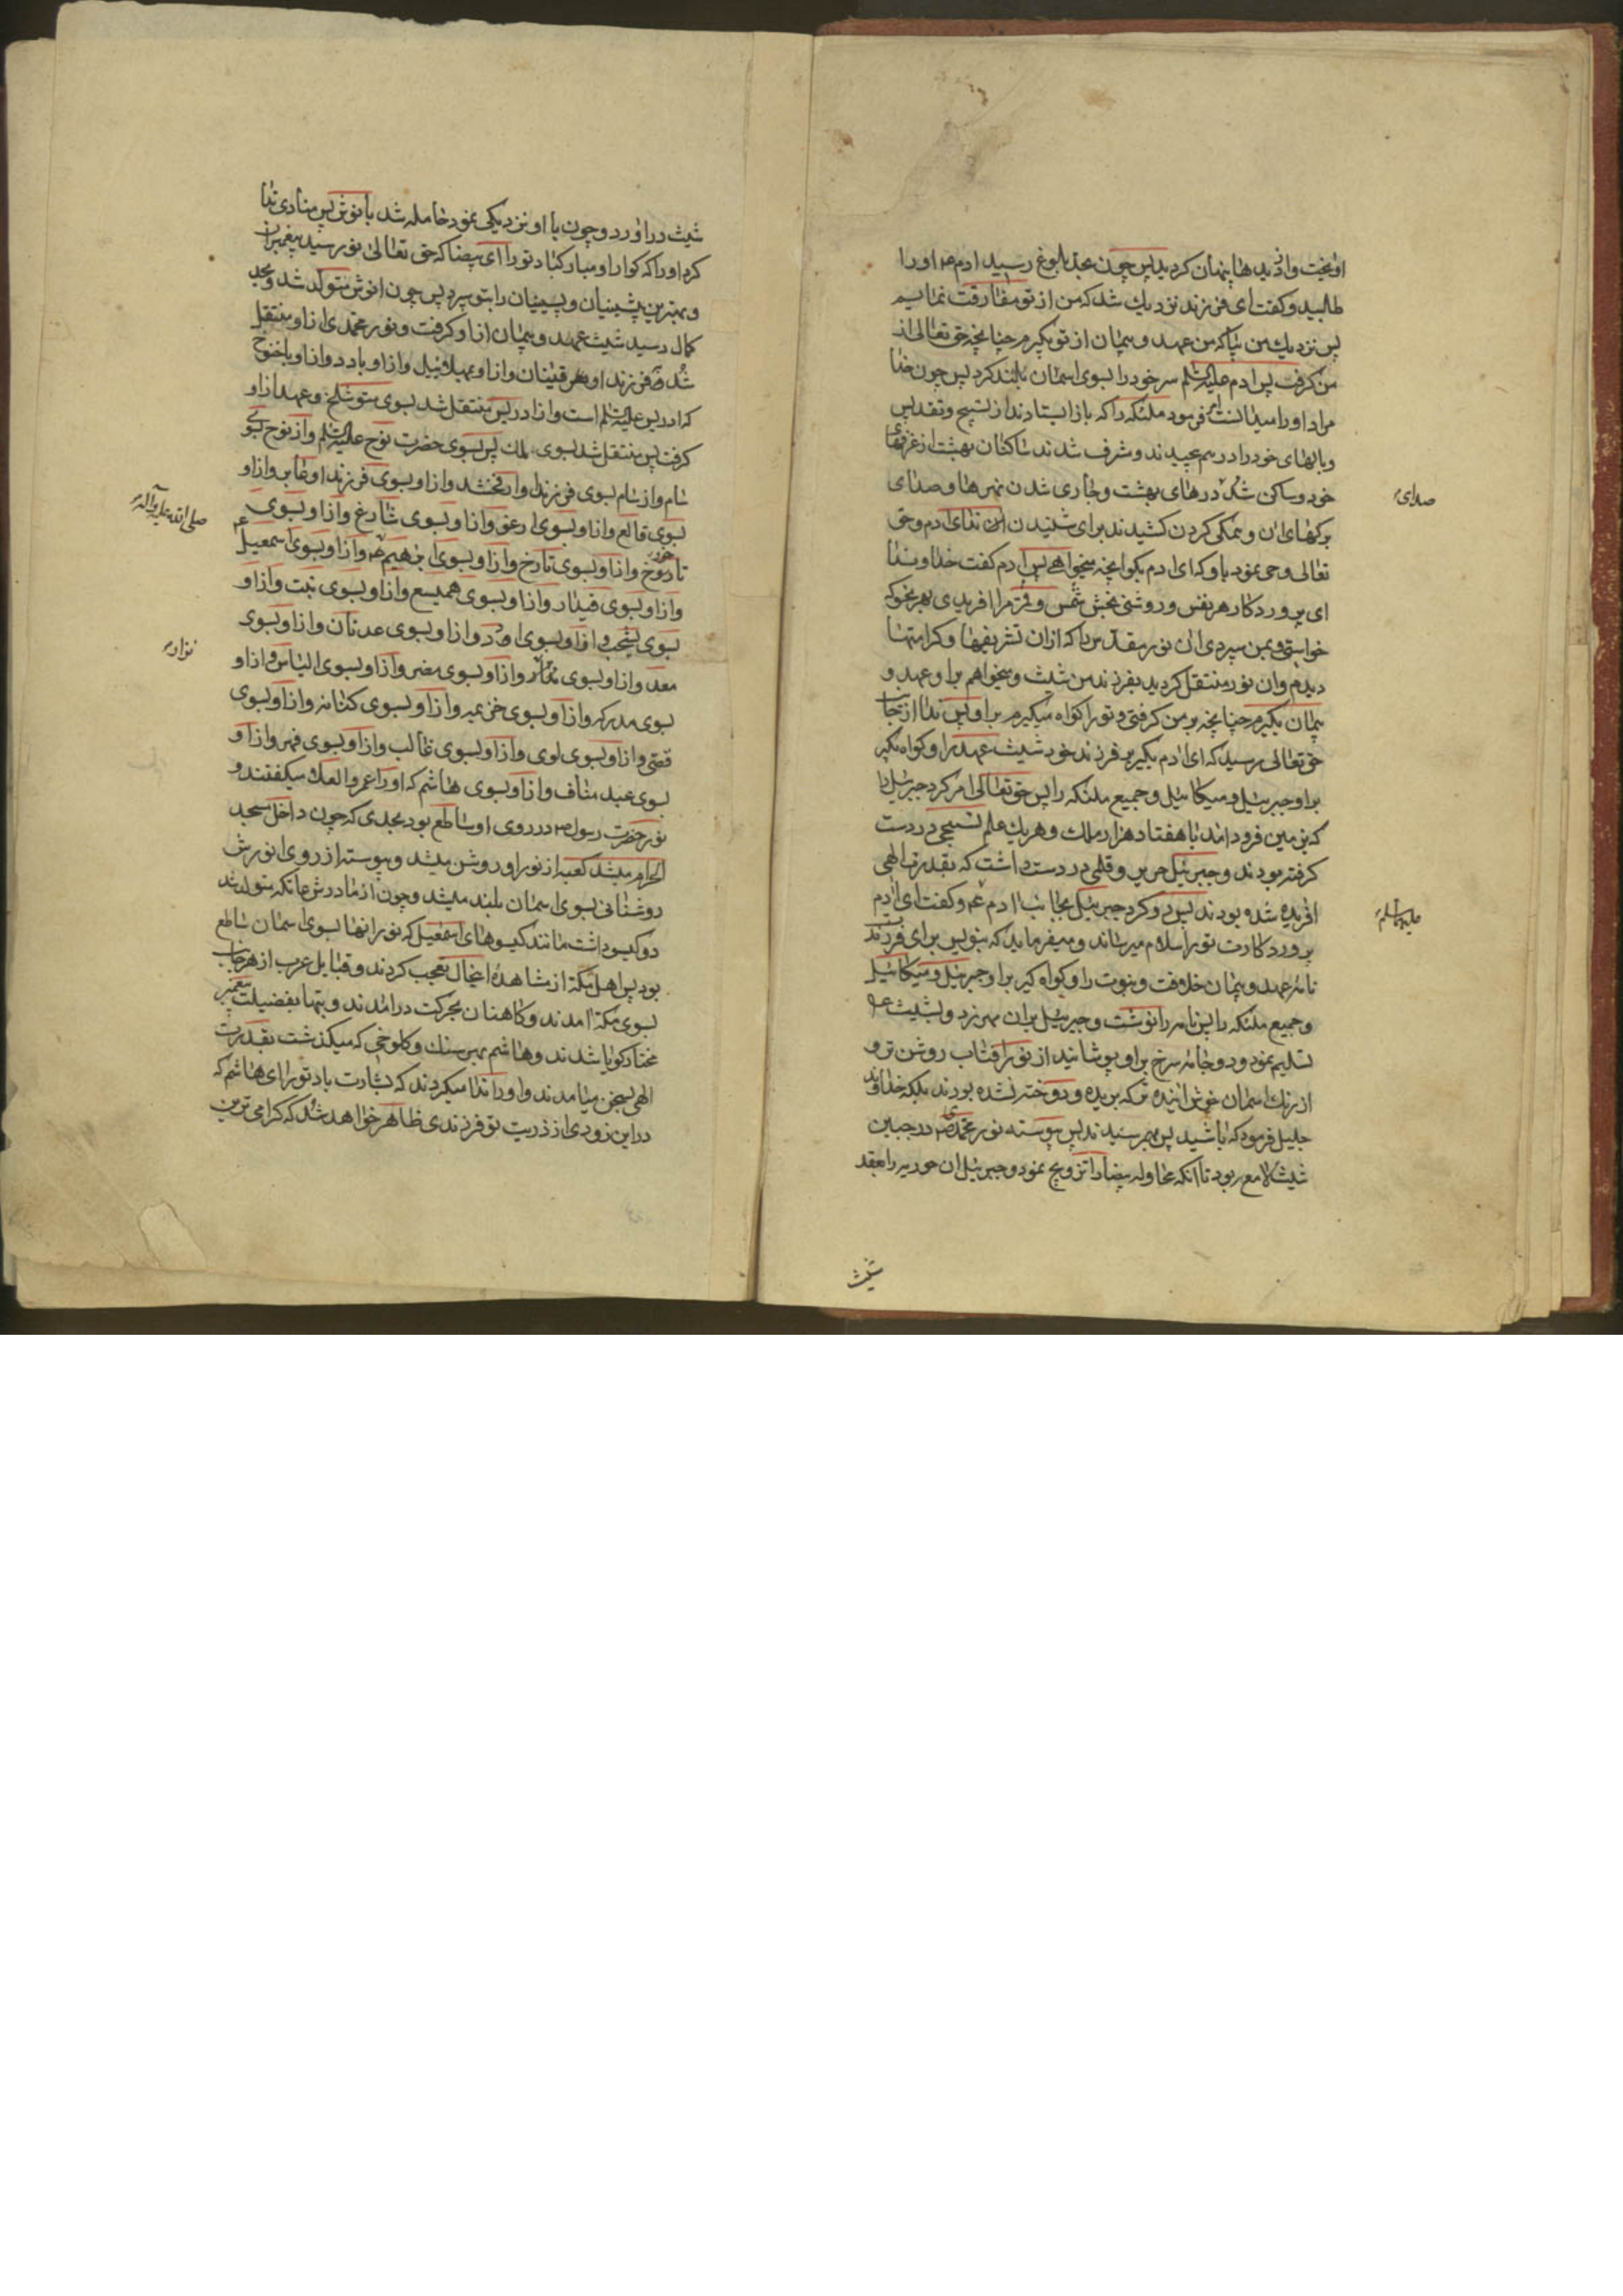 او یخت و از دیدها پنهان کردید پس چون بحد بلوغ رسید ادم عم او را
طلبید و کفت ای فرزند نزدیك شد که من از تو مفارقت نمایم
پس نزدیك من بیا که من عهد و پیمان از تو بگیرم چنانچه حق تعالی از
من کرفت پس ادم علیه السلام سر خود را بسوی اسمان بلند کرد پس چون خدا
مراد او را میدانست امر فرمود ملئکه را که باز ایستادند از تسبیح و تقدیس
و بالهای خود را در هم پیچیدند و مشرف شدند ساکنان بهشت از غرفهای
خود و ساکن شد درهای بهشت و جاری شدن نهرها و صدای
صدای
برکهای ان و همکی کردن کشیدند برای شنیدن ندای ادم و حق
تعالی وحی نمود باو که ای ادم بکو انچه میخواهی پس ادم کفت خداوندا
ای پروردکار هر نفس و روشنی بخش شمس و قمر مرا افریدی بهر نحو که
خواستی و بمن سپردی ان نور مقدس را که ازان تشریفها و کرامتها
دیدم وان نور منتقل کردید بفرزند من شیث و میخواهم براو عهد و
پیمان بگیرم چنانچه بر من کرفتی و تو را کواه میگیرم براو پس ندا از جناب
حق تعالی رسید که ای ادم بگیر بر فرزند خود شیث عهد را و کواه بگیر
براو جبرئیل و میکائیل و جمیع ملئکه را پس حق تعالی امر کرد جبرئیل را
که بزمین فرود امد با هفتاد هزار ملك و هر یك علم تسبیحی در دست
کرفته بودند و جبرئیل حریر و قلمی در دست داشت که بقدرت الهی
افریده شده بودند پس رو کرد جبرئیل بجانب ادم عم و کفت ای ادم
علیه السلام
پروردکارت تو را سلام میرساند و میفرماید که بنویس برای فرزند
نامه عهد و پیمان خلافت و نبوت را و کواه کیر براو جبرئیل و میکائیل
و جمیع ملئکه را پس نامه را نوشت و جبرئیل بران مهر زد و بشیث عم
تسلیم نمود و دو جامه سرخ براو پوشانید از نور افتاب روشن تر و
از رنك اسمان خوش اینده تر که بریده و دوخته نشده بودند بلکه خداوند
جلیل فرمود که باشید پس بهم رسیدند پس پیوسته نور محمدی ص در جبین
شیث لامع بود تا انکه محاوله بیضا را تزویج نمود و جبرئیل ان حوریه را بعقد
شیث
شیث دراورد و چون با او نزدیکی نمود حامله شد بانوش پس منادی ندا
کرد او را که کوارا و مبارك باد تو را ای بیضا که حق تعالی نور سید پیغمبران
و بهترین پیشینیان و پسینیان را بتو سپرد پس چون انوش متولد شد و بحد
کمال رسید شیث عهد و پیمان از او کرفت و نور محمدی از او منتقل
شد ص فرزند او قینان و از او بمهلائیل و از او بادد و از او باخنوخ
که ادریس علیه السلام است و از ادریس منتقل شد بسوی متوشلخ و عهد از او
کرفت پس منتقل شد بسوی لمك پس بسوی حضرت نوح علیه السلام و از نوح بسوی
سام و از سام بسوی فرزند او ارفخشد و از او بسوی فرزند او عابر و از او
بسوی قالع و از او بسوی ارعق و از او بسوی شارغ و از او بسوی
صلی الله علیه وآله
تاروخ و از او بسوی تارخ و از او بسوی ابرهیم عم و از او بسوی اسمعیل عم
و از او بسوی قیدار و از او بسوی همیسع و از او بسوی نبت و از او
بسوی یشحب و از او بسوی ادد و از او بسوی عدنان و از او بسوی
نزاو
معد و از او بسوی نزار و از او بسوی مضر و از او بسوی الیاس و از او
بسوی مدرکه و از او بسوی خزیمه و از او بسوی کنانه و از او بسوی
قصی و از او بسوی لوی و از او بسوی غالب و از او بسوی فهر و از او
بسوی عبد مناف و از او بسوی هاشم که او را عمرو العلا میکفتند و
نور حضرت رسول ص در روی او ساطع بود بحدی که چون داخل مسجد
الحرام میشد کعبه از نور او روشن میشد و پیوسته از روی انورش
روشنائی بسوی اسمان بلند میشد و چون از مادرش عاتکه متولد شد
دو کیسو داشت مانند کیسوهای اسمعیل که نور انها بسوی اسمان ساطع
بود پس اهل مکه از مشاهده اینحال تعجب کردند و قبایل عرب از هر جانب
بسوی مکه امدند و کاهنان بحرکت درامدند و بتها بفضیلت پیغمبر
مختار کویا شدند و هاشم بهر سنك و کلوخی که میکذشت بقدرت
الهی بسخن میامدند و او را ندا میکردند که بشارت باد تو را ای هاشم که
در این زودی از ذریت تو فرزندی ظاهر خواهد شد که کرامی ترین